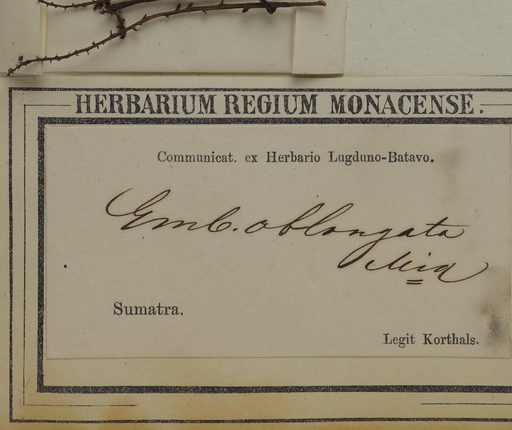 HERBARIUM REGIUM MONACENSE.
Communicat. ex Herbario Lugduno-Batavo.
Emb. oblongata
Miq
Sumatra.
Legit Korthals.